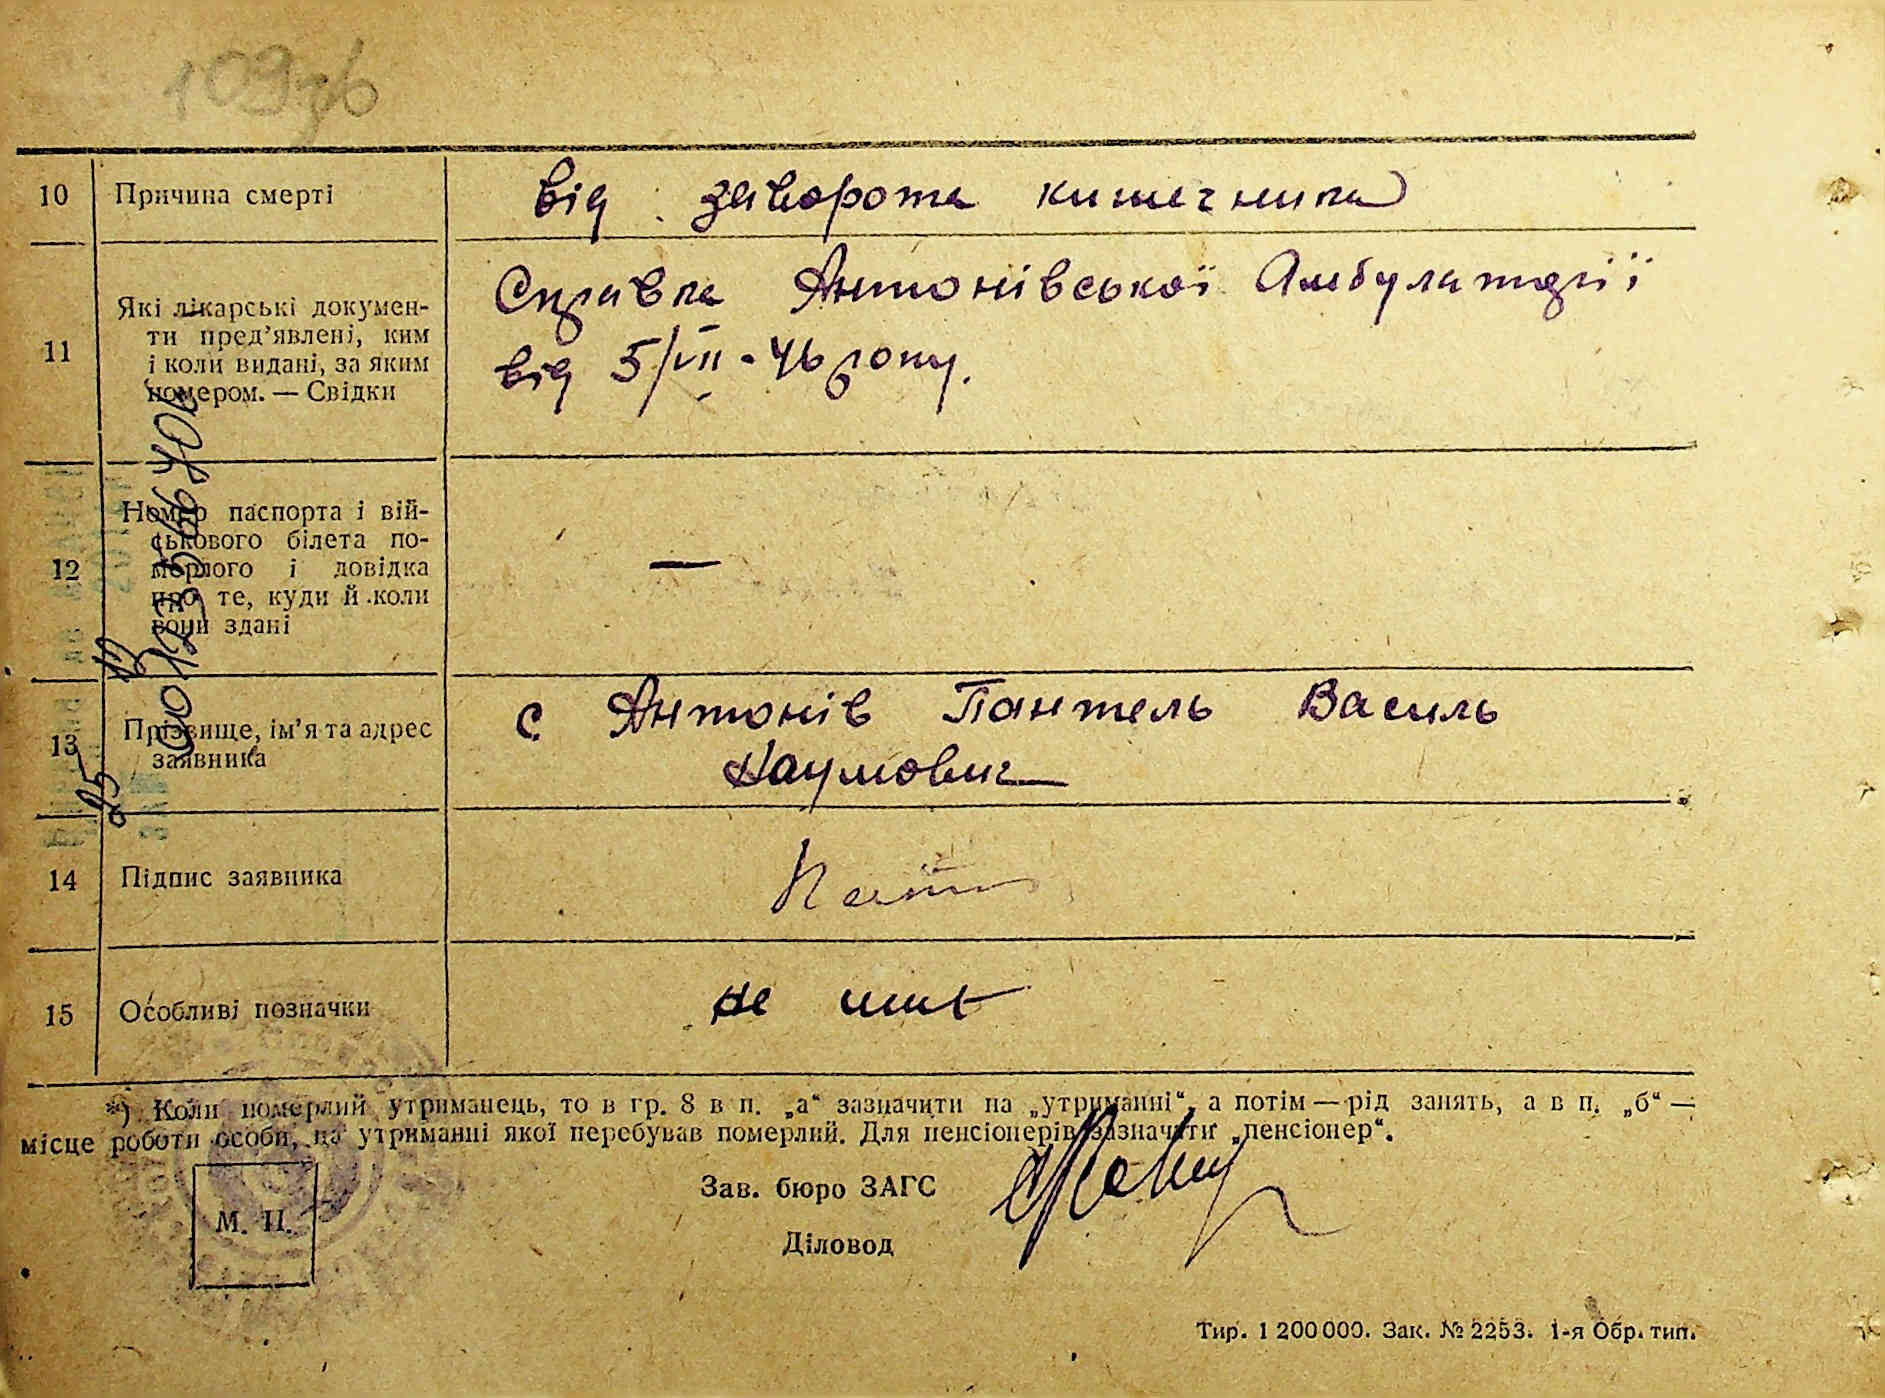 109зв
10 Причина смерті від заворота кишечника
11 Які лікарські докумен-
ти пред’явлені, ким
і коли видані, за яким
номером. — Свідки
Справка Антонівської Амбулаторії
від 5/VII - 46 року.
12 Номер паспорта і вій-
ськового білета по-
мерлого і довідка
про те, куди й коли
вони здані
—
13 Прізвище, ім’я та адрес
заявника
с Антонів Пантель Василь
Наумович
14 Підпис заявника
15 Особливі позначки не має
*) Коли померлий утриманець, то в гр. 8 в п. „а“ зазначити на „утриманні“, а потім — рід занять, а в п. „б“ —
місце роботи особи, на утриманні якої перебував померлий. Для пенсіонерів зазначити „пенсіонер“.
Зав. бюро ЗАГС
М. П.
Діловод
Тир. 1 200 000. Зак. № 2253. 1-я Обр. тип.